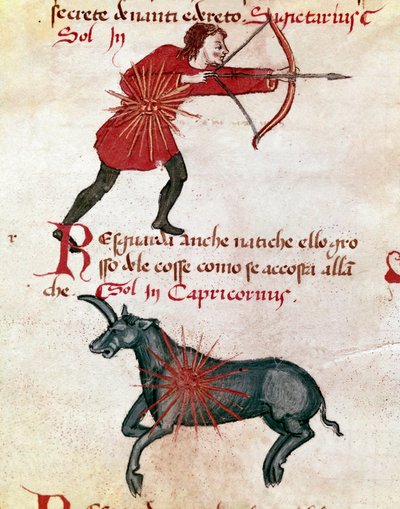 secrete denanti edreto. Sagictarius
Sol In
Resguarda anche natiche ello gro
sso dele cosse como se accosta alla
che. Sol In Capricornus.